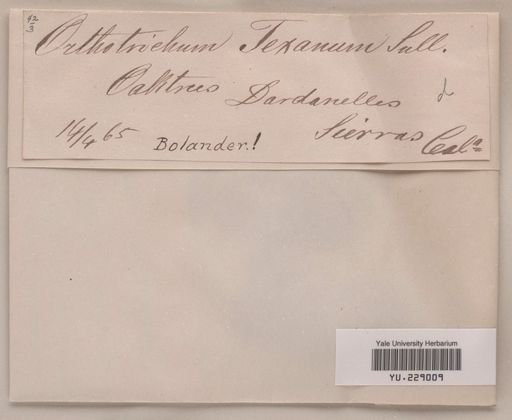 92
3
Orthotrichum Texanum Sull.
Oaktrees Dardanelles
Sierras Cala
14/4 65 Bolander.!
Yale University Herbarium
YU.229009